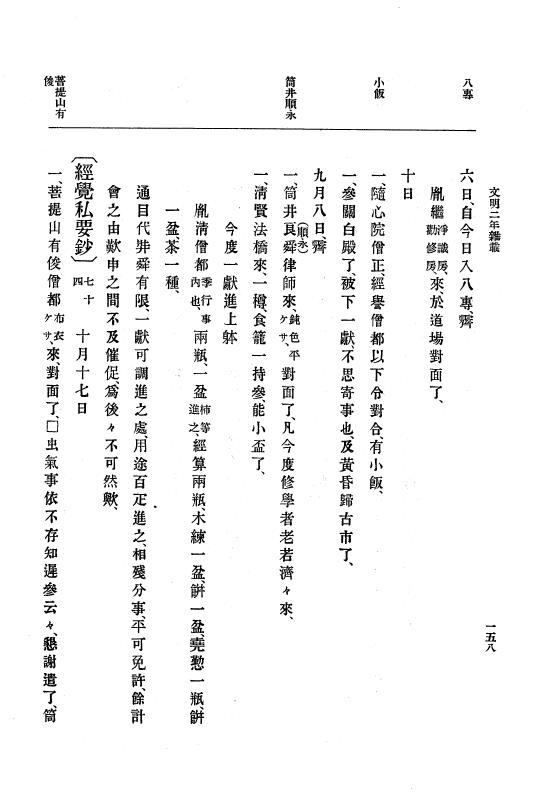 文明二年雜載
一五八
八專
小飯
筒井順永
菩提山有
俊
六日、自今日入八專、霽
胤繼淨識房、勸修房、來、於道場對面了、
十日
一、隨心院僧正、經譽僧都以下分對合、有小飯、
一、參關白殿了、被下一獻、不思寄事也、及黃昏歸古市了、
九月八日、霽
一、筒井良舜律師來、鈍色平ケサ、對面了、凡今度修學者老若濟々來、
(順永)
一、淸賢法橋來、一樽、食籠一持參、能小盃了、
今度一獻進上躰
胤淸僧都季行事內也、兩瓶、一盆柿等進之、經算兩瓶、木練一盆、餠一盆、堯懃一瓶、餠
一盆茶一種、
通目代幷舜有限、一獻可調進之處、用途百疋進之、相殘分事、平可免許、餘計
會之由歎申之間不及催促、爲後々不可然歟、
〔經覺私要鈔〕七十四 十月十七日
一、菩提山有俊僧都布衣ケサ、來、對面了、□虫氣事依不存知遲參云々、懇謝遣了、筒